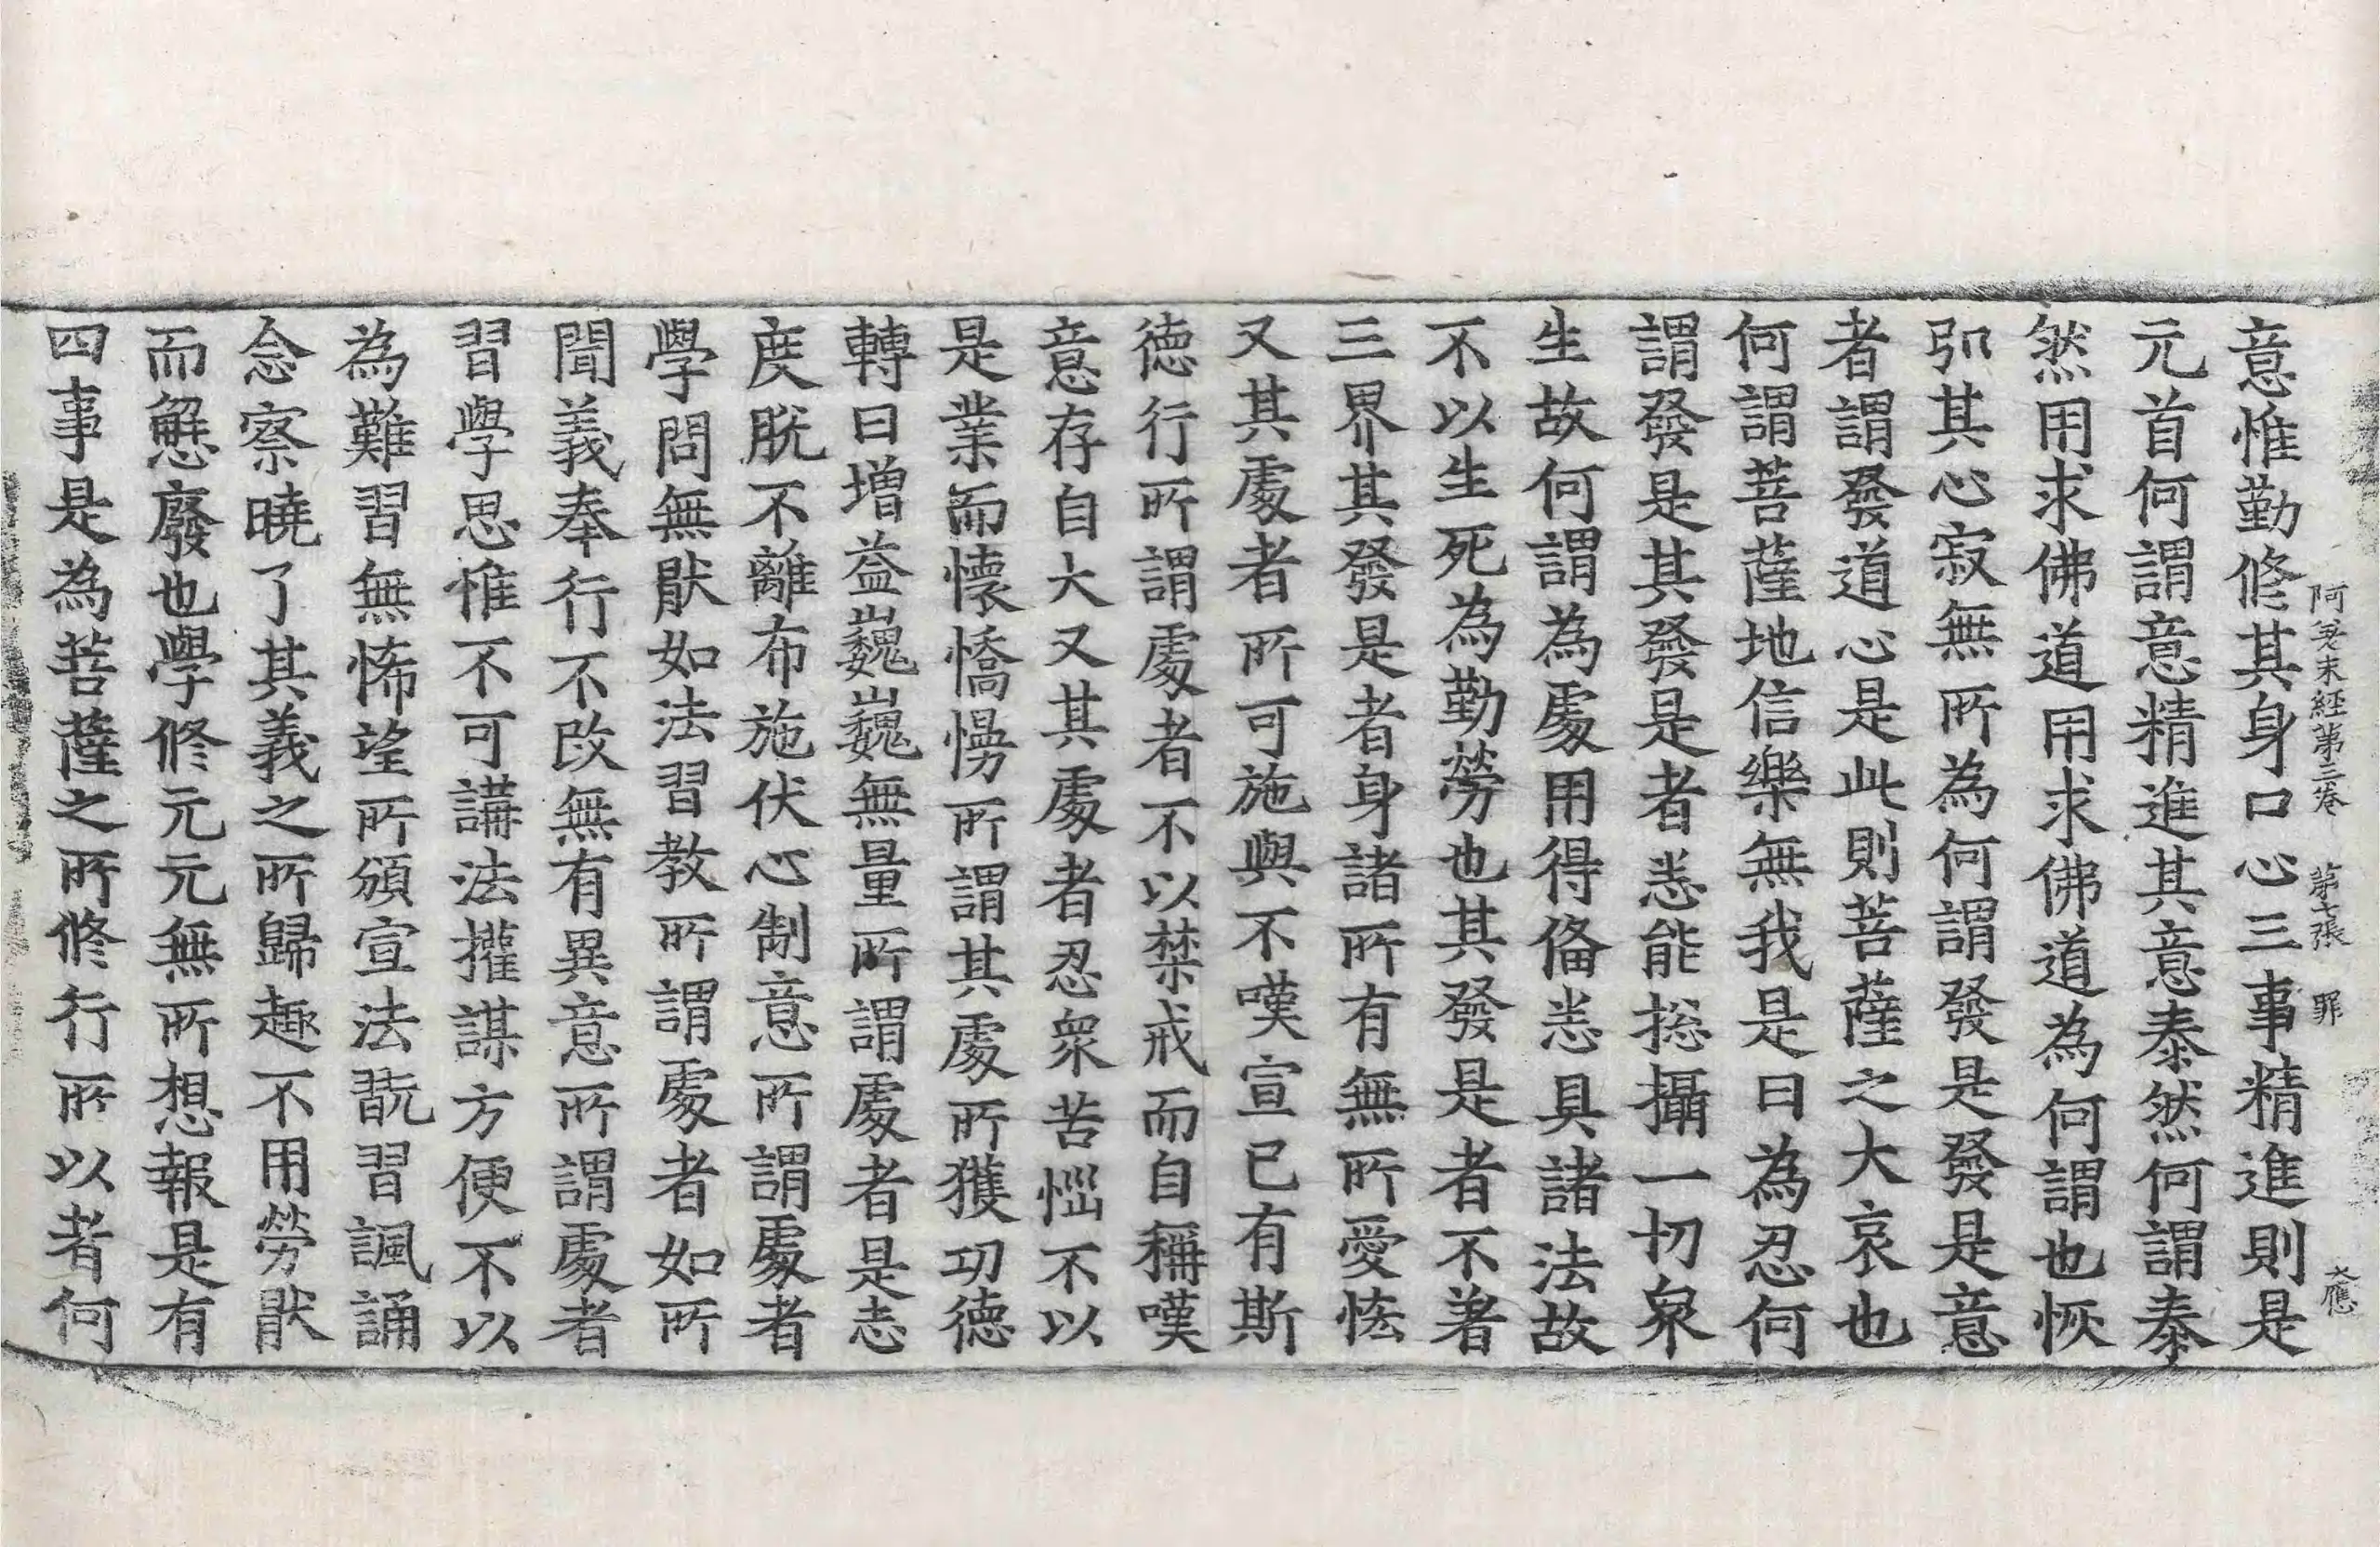 阿差末經第三卷 第十張 罪 大應
意惟勤修其身口心三事精進則是
元首何謂意精進其意泰然何謂泰
然用求佛道用求佛道為何謂也恢
弘其心寂無所為何謂發是發是意
者謂發道心是此則菩薩之大哀也
何謂菩薩地信樂無我是曰為忍何
謂發是其發是者悉能揔攝一切眾
生故何謂為處用得俻悉具諸法故
不以生死為勤勞也其發是者不著
三界其發是者身諸所有無所愛恡
又其處者所可施與不嘆宣已有斯
德行所謂處者不以禁戒而自稱嘆
意存自大又其處者忍衆苦惱不以
是業而懷憍慢所謂其處所獲功德
轉曰增益巍巍無量所謂處者是志
度脫不離布施伏心制意所謂處者
學問無猒如法習教所謂處者如所
聞義奉行不改無有異意所謂處者
習學思惟不可講法權謀方便不以
為難習無怖望所頒宣法翫習諷誦
念察曉了其義之所歸趣不用勞猒
而懈廢也學修元元無所想報是有
四事是為菩薩之所修行所以者何